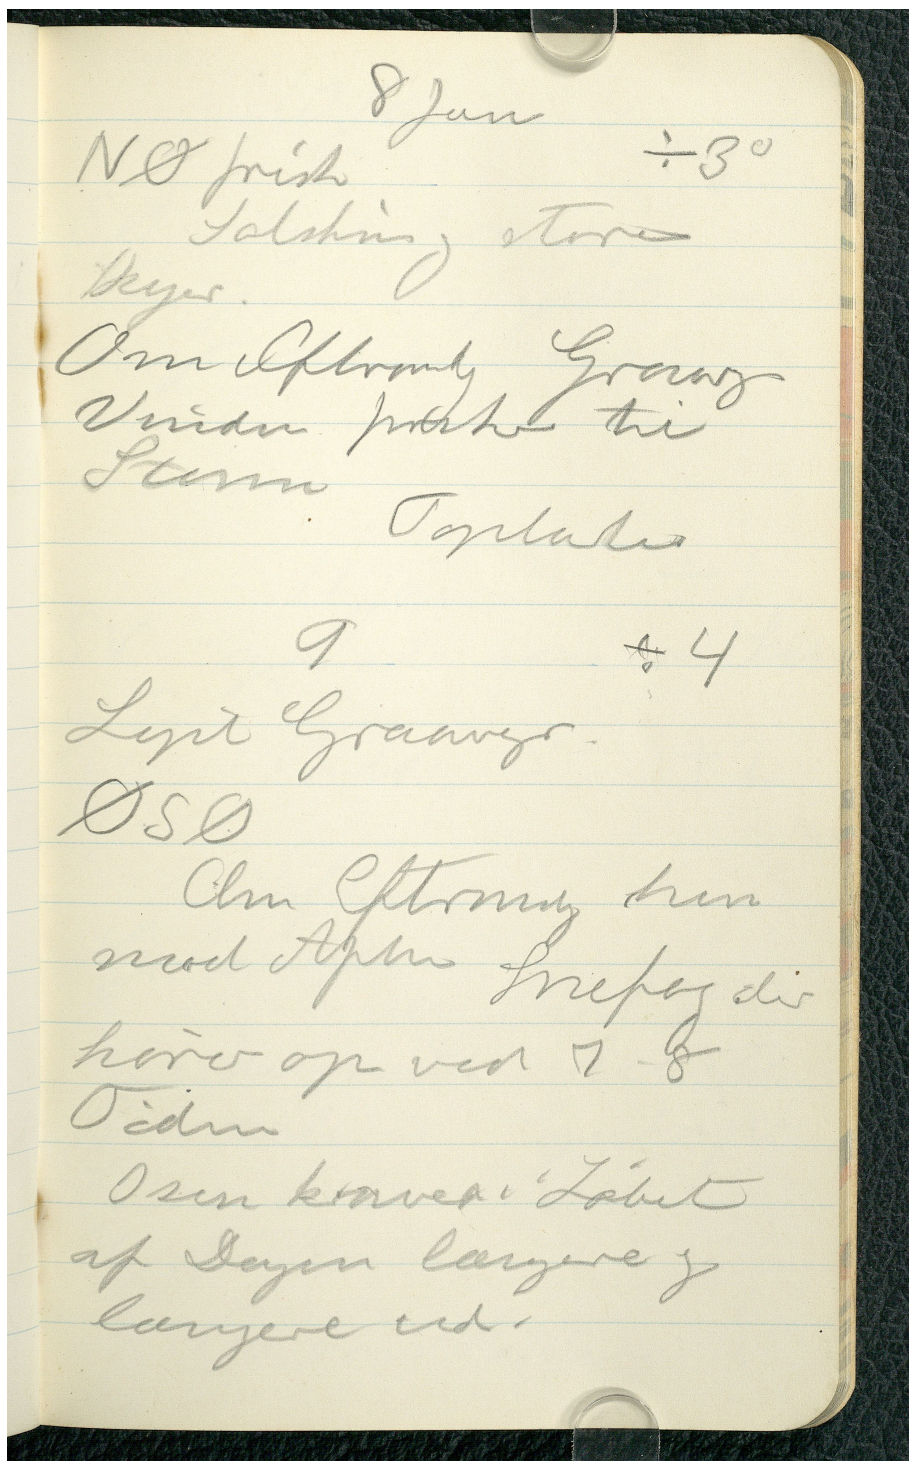 8 Jan
NØ frisk ÷3°
Solskin og store
Skyer.
Om Eftermdg Graavejr
Vinden frisker til
Storm
Toplærke
9 ÷ 4
Lyst Graavejr.
ØSØ
Om Eftermdg hen
mod Aften Snefog der
hører op ved 7-8
Tiden
Osen kraver i Løbet
af Dagen længere og
længere ud.